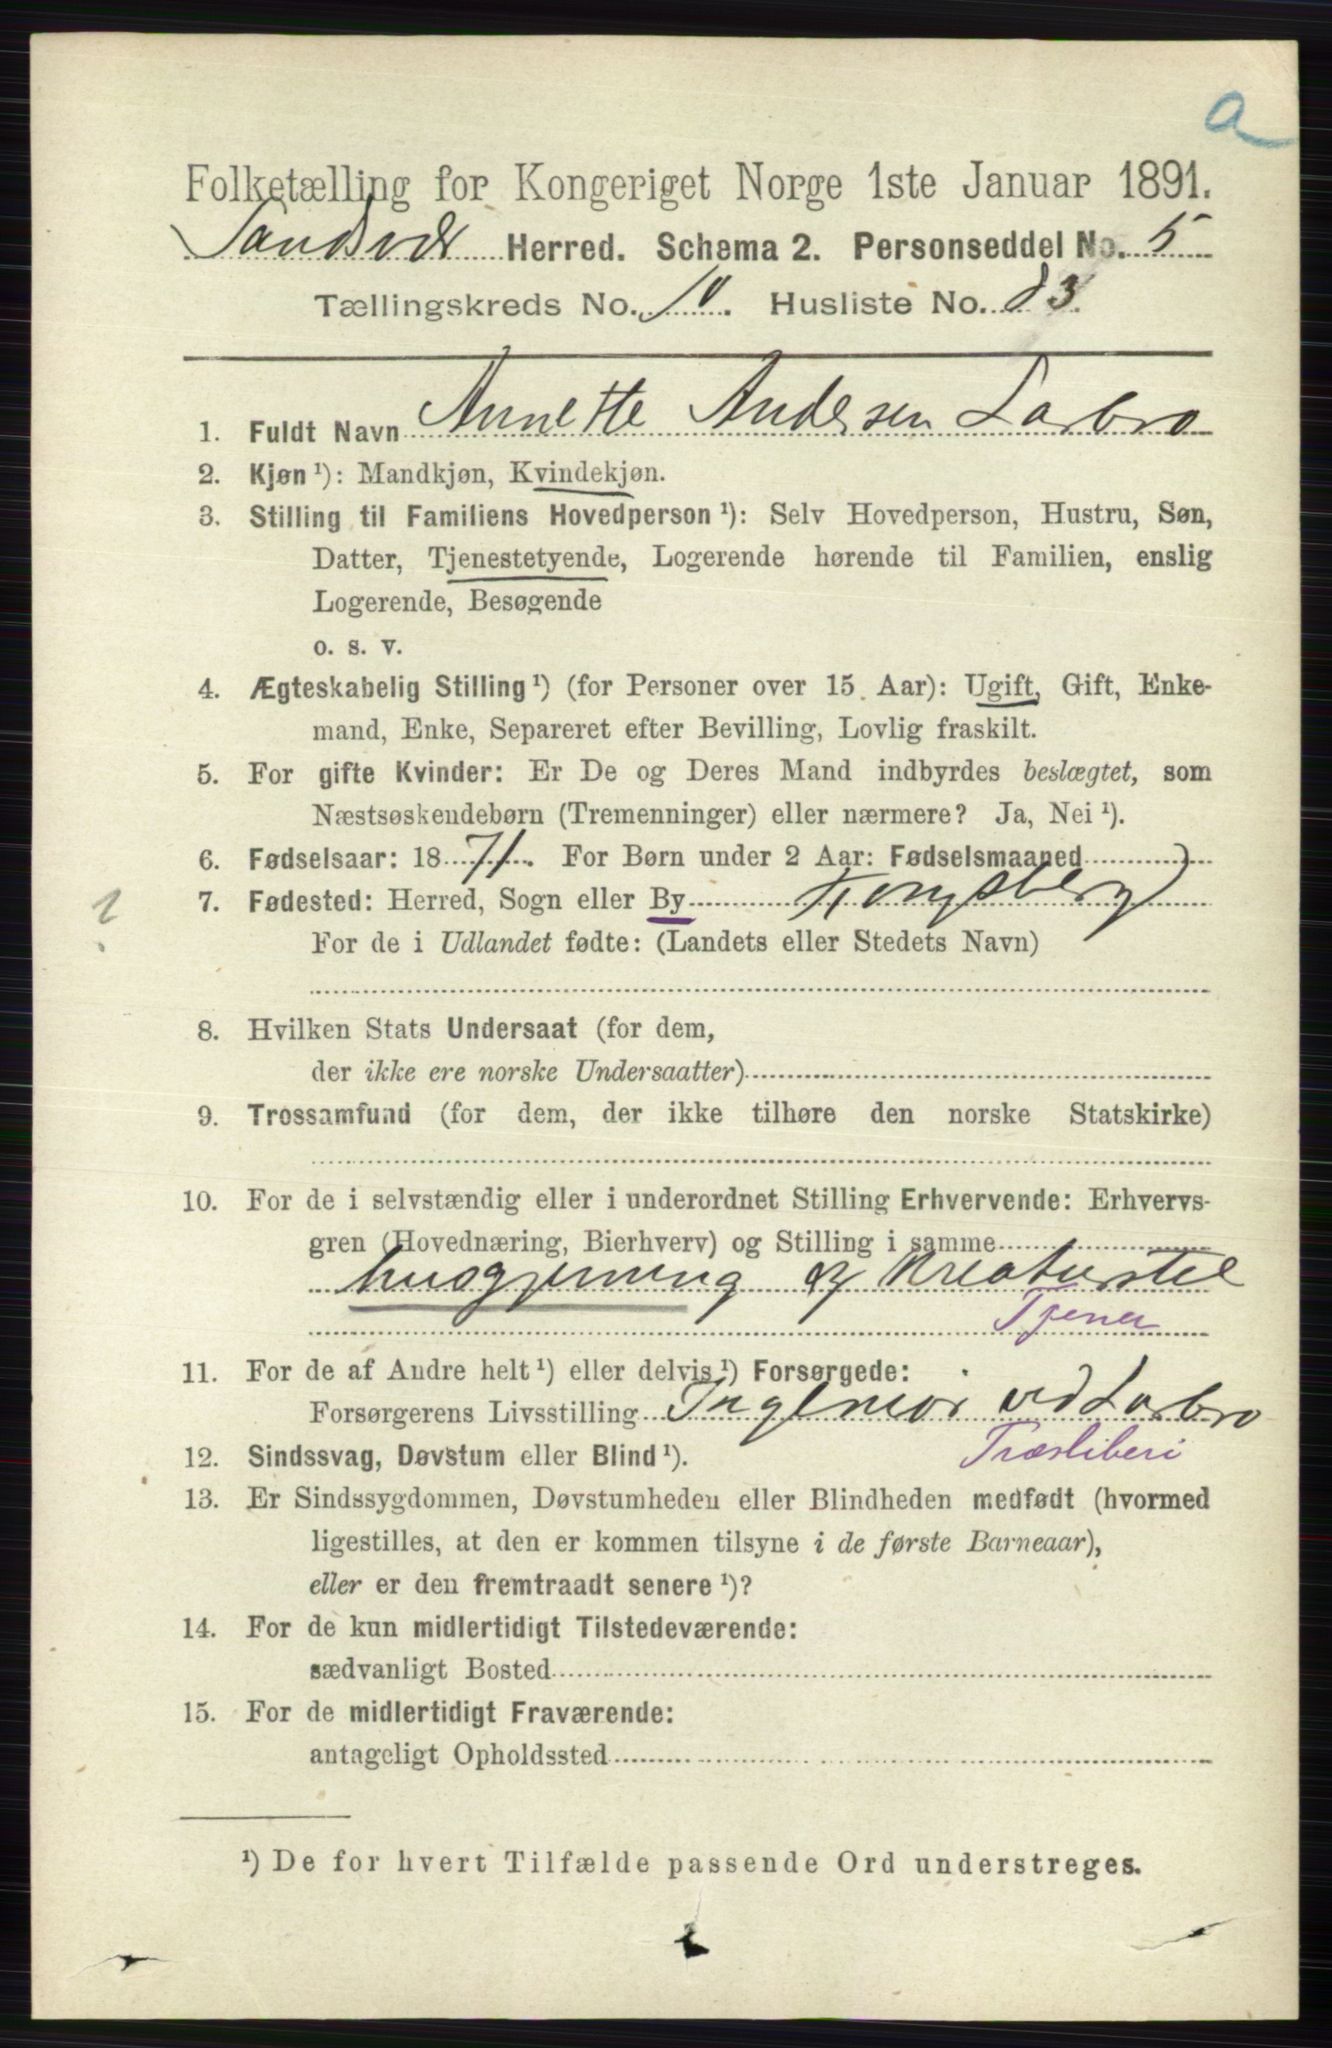 a
Folketælling for Kongeriget Norge 1ste Januar 1891.
Sandsvær Herred. Schema 2. Personseddel No. 5
Tællingskreds No. 10. Husliste No. 83.
1. Fuldt Navn Annette Andersen Labro
2. Kjøn ¹): Mandkjøn, Kvindekjøn.
3. Stilling til Familiens Hovedperson ¹): Selv Hovedperson, Hustru, Søn,
Datter, Tjenestetyende, Logerende hørende til Familien, enslig
Logerende, Besøgende
o. s. v.
4. Ægteskabelig Stilling ¹) (for Personer over 15 Aar): Ugift, Gift, Enke-
mand, Enke, Separeret efter Bevilling, Lovlig fraskilt.
5. For gifte Kvinder: Er De og Deres Mand indbyrdes beslægtet, som
Næstsøskendebørn (Tremenninger) eller nærmere? Ja, Nei ¹).
6. Fødselsaar: 1871. For Børn under 2 Aar: Fødselsmaaned
? 7. Fødested: Herred, Sogn eller By Kongsberg
For de i Udlandet fødte: (Landets eller Stedets Navn)
8. Hvilken Stats Undersaat (for dem,
der ikke ere norske Undersaatter)
9. Trossamfund (for dem, der ikke tilhøre den norske Statskirke)
10. For de i selvstændig eller i underordnet Stilling Erhvervende: Erhvervs-
gren (Hovednæring, Bierhverv) og Stilling i samme
husgjerning og Kreaturstel
Tjener
11. For de af Andre helt ¹) eller delvis ¹) Forsørgede:
Forsørgerens Livsstilling Ingeniør ved Labro
Træsliberi
12. Sindssvag, Døvstum eller Blind ¹).
13. Er Sindssygdommen, Døvstumheden eller Blindheden medfødt (hvormed
ligestilles, at den er kommen tilsyne i de første Barneaar),
eller er den fremtraadt senere ¹)?
14. For de kun midlertidigt Tilstedeværende:
sædvanligt Bosted
15. For de midlertidigt Fraværende:
antageligt Opholdssted
¹) De for hvert Tilfælde passende Ord understreges.